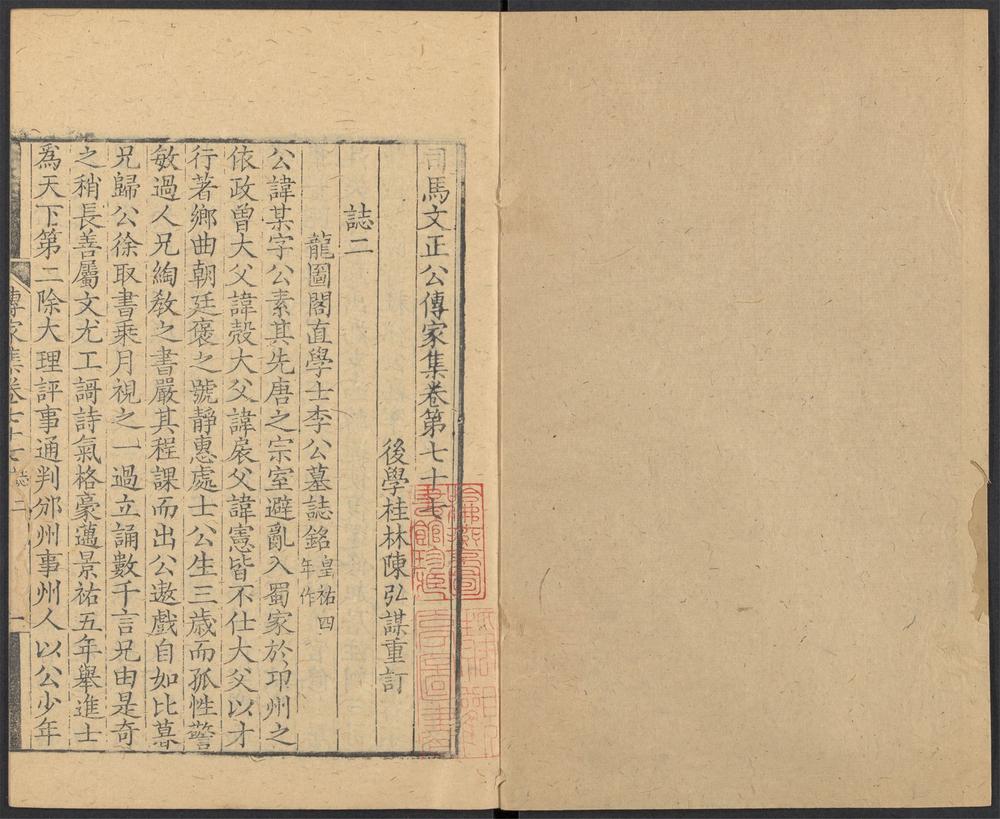 司馬文正公傳家集卷第七十七
後學桂林陳弘謀重訂
誌二
龍圖閣直學士李公墓誌銘皇祐四年作
公諱某字公素其先唐之宗室避亂入蜀家於卭州之
依政曾大父諱殻大父諱扆父諱憲皆不仕大父以才
行著鄉曲朝廷褒之號靜惠處士公生三歳而孤性警
敏過人兄絢敎之書嚴其程課而出公遨戲自如比暮
兄歸公徐取書乗月視之一過立誦數千言兄由是奇
之稍長善屬文尤工謌詩氣格豪邁景祐五年舉進士
爲天下第二除大理評事通判邠州事州人以公少年
傳家集卷七十七 誌二 一